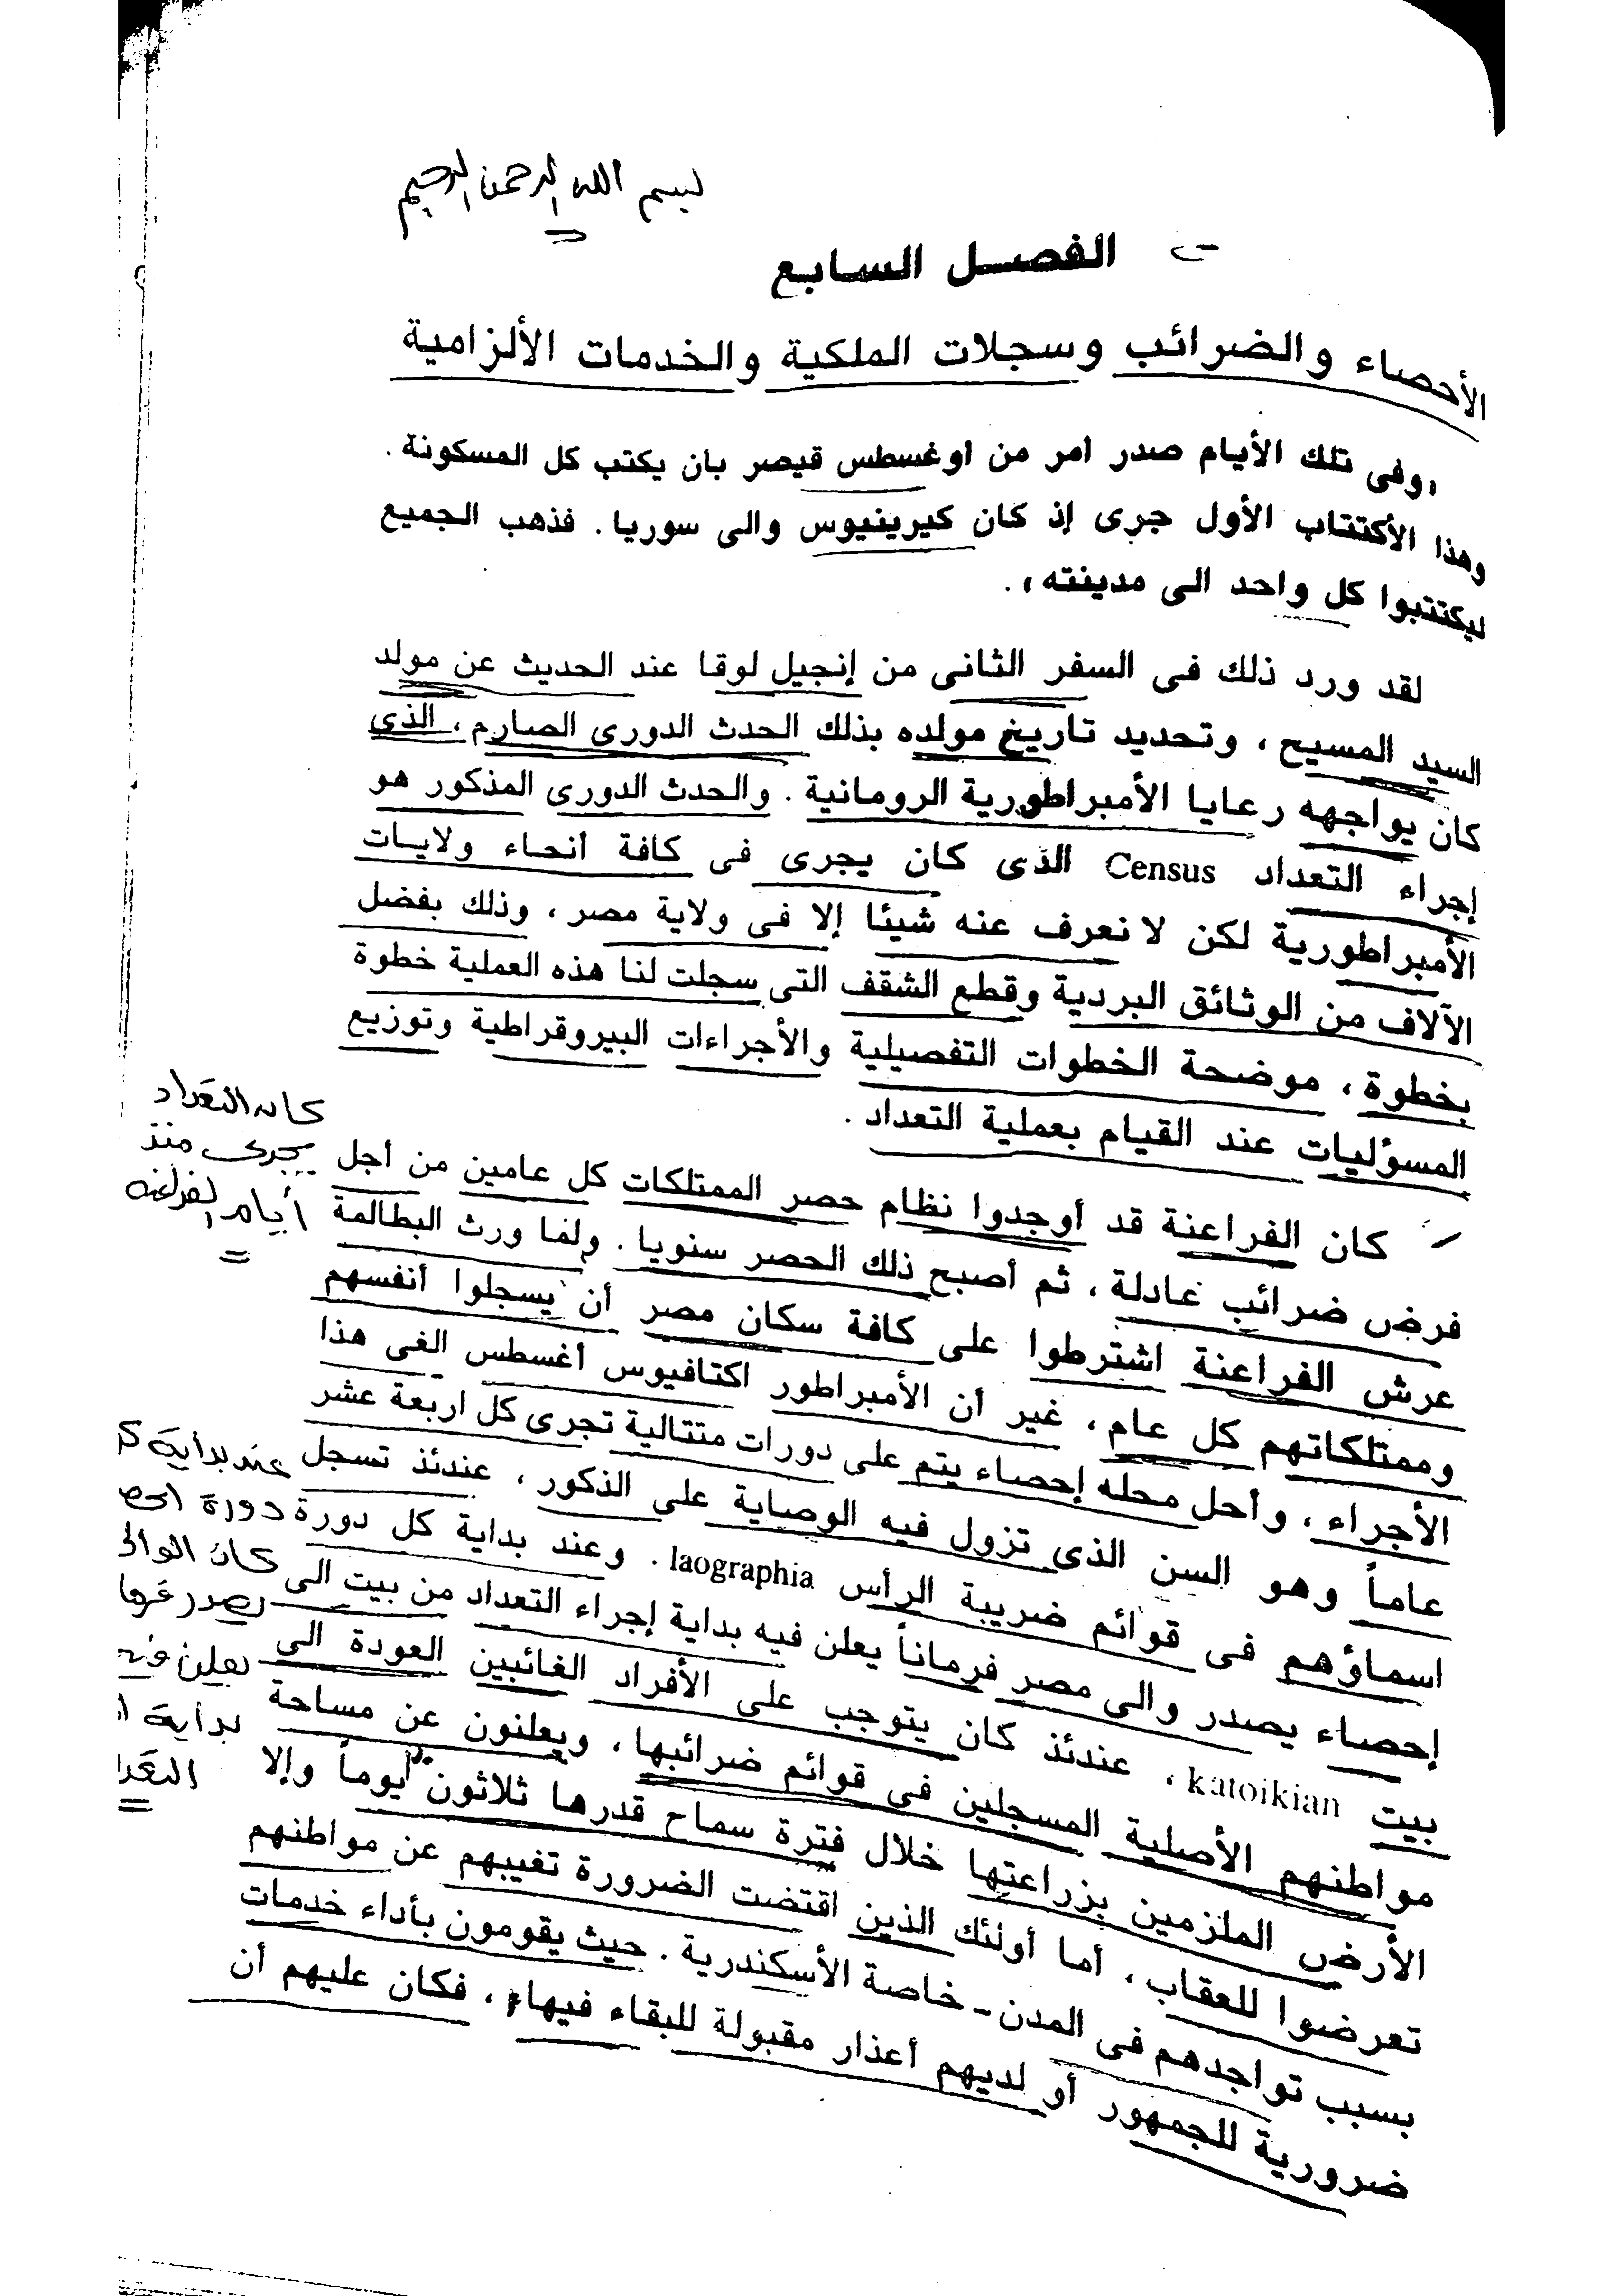 بسم الله الرحمن الرحيم
الفصل السابع
الأحصاء والضرائب وسجلات الملكية والخدمات الألزامية
«وفى تلك الأيام صدر امر من اوغسطس قيصر بأن يكتب كل المسكونة .
وهذا الأكتتاب الأول جرى إذ كان كيرينيوس والى سوريا . فذهب الجميع
ليكتتبوا كل واحد الى مدينته» .
لقد ورد ذلك فى السفر الثانى من إنجيل لوقا عند الحديث عن مولد
السيد المسيح ، وتحديد تاريخ مولده بذلك الحدث الدورى الصارم ، الذى
كان يواجهه رعايا الأمبراطورية الرومانية . والحدث الدورى المذكور هو
إجراء التعداد Census الذى كان يجرى فى كافة أنحاء ولايات
الأمبراطورية لكن لا نعرف عنه شيئا إلا فى ولاية مصر ، وذلك بفضل
الآلاف من الوثائق البردية وقطع الشقف التى سجلت لنا هذه العملية خطوة
بخطوة ، موضحة الخطوات التفصيلية والأجراءات البيروقراطية وتوزيع
المسؤليات عند القيام بعملية التعداد .
كان الفراعنة قد أوجدوا نظام حصر الممتلكات كل عامين من أجل
فرض ضرائب عادلة ، ثم أصبح ذلك الحصر سنويا . ولما ورث البطالمة
عرش الفراعنة اشترطوا على كافة سكان مصر أن يسجلوا أنفسهم
وممتلكاتهم كل عام ، غير أن الأمبراطور اكتافيوس أغسطس الغى هذا
الأجراء ، وأحل محله إحصاء يتم على دورات متتالية تجرى كل اربعة عشر
عاماً وهو السن الذى تزول فيه الوصاية على الذكور ، عندئذ تسجل
اسماؤهم فى قوائم ضريبة الرأس laographia . وعند بداية كل دورة
إحصاء يصدر والى مصر فرماناً يعلن فيه بداية إجراء التعداد من بيت الى
بيت katoikian ، عندئذ كان يتوجب على الأفراد الغائبين العودة الى
مواطنهم الأصلية المسجلين فى قوائم ضرائبها ، ويعلنون عن مساحة
الأرض الملزمين بزراعتها خلال فترة سماح قدرها ثلاثون يوماً وإلا
تعرضوا للعقاب ، أما أولئك الذين اقتضت الضرورة تغيبهم عن مواطنهم
بسبب تواجدهم فى المدن - خاصة الأسكندرية . حيث يقومون بأداء خدمات
ضرورية للجمهور أو لديهم أعذار مقبولة للبقاء فيها ، فكان عليهم أن
كان التعداد
يجرى منذ
أيام الفراعنه
عند بداية
دورة
كان الوالى
يصدر
يعلن
بداية